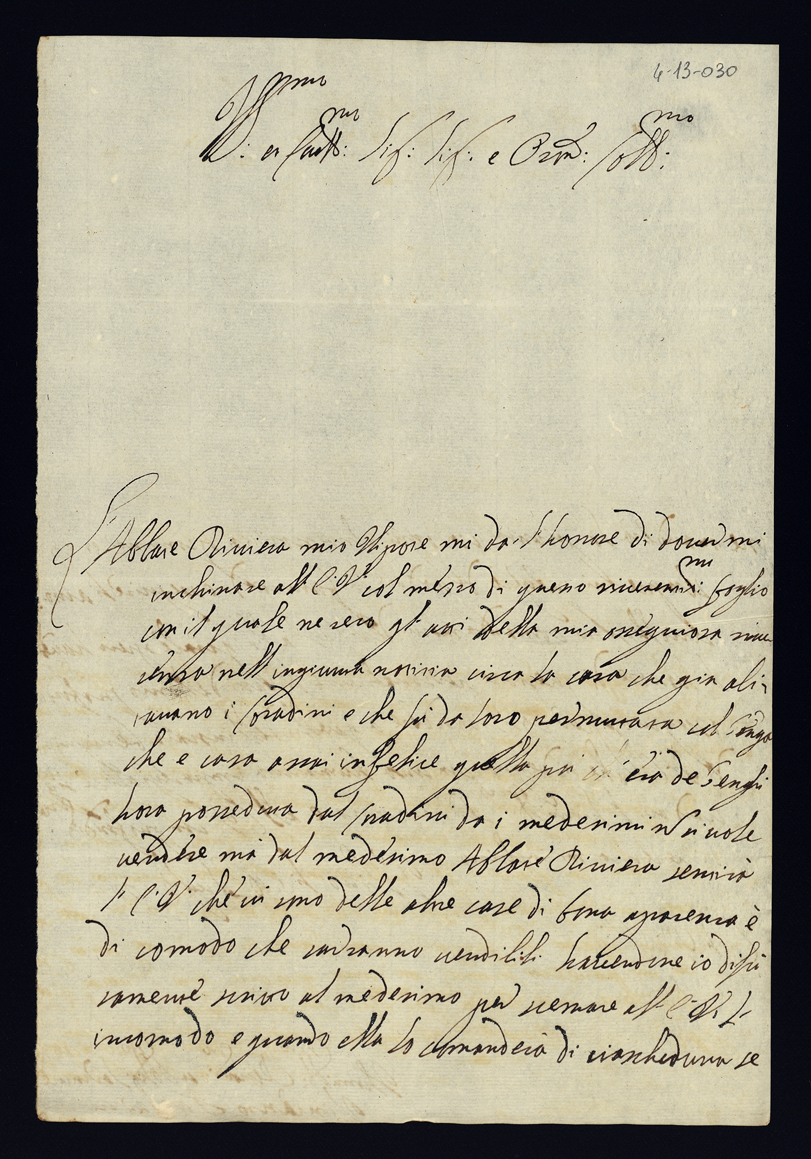 4-13-030
Ill.mo: et Ecc.mo: Sig: Sig: e Pron: Coll.mo:
L'Abbate Riviera mio Nipote mi da l'honore di dovermi
inchinare all' E: V: col mezzo di questo riverentis.mo: foglio
con il quale ne reco gl' atti della mia ossequiosa rive
renza nell' ingiunta notizia circa la casa che gia abi=
tavano i Soradini e che fù da loro permutata col
che e casa assai infelice quella poi era de
hora posseduta dal da i medesimi non si vole
vendere mà dal medesimo Abbate Riviera sentirà
l' E: V: che vi sono delle altre case di bona aparenza è
di comodo che sarranno vendibili havendone io difu
samente scritto al medesimo per scemare all' E: V: l'
incomodo e quando ella lo comanderà di ciascheduna se